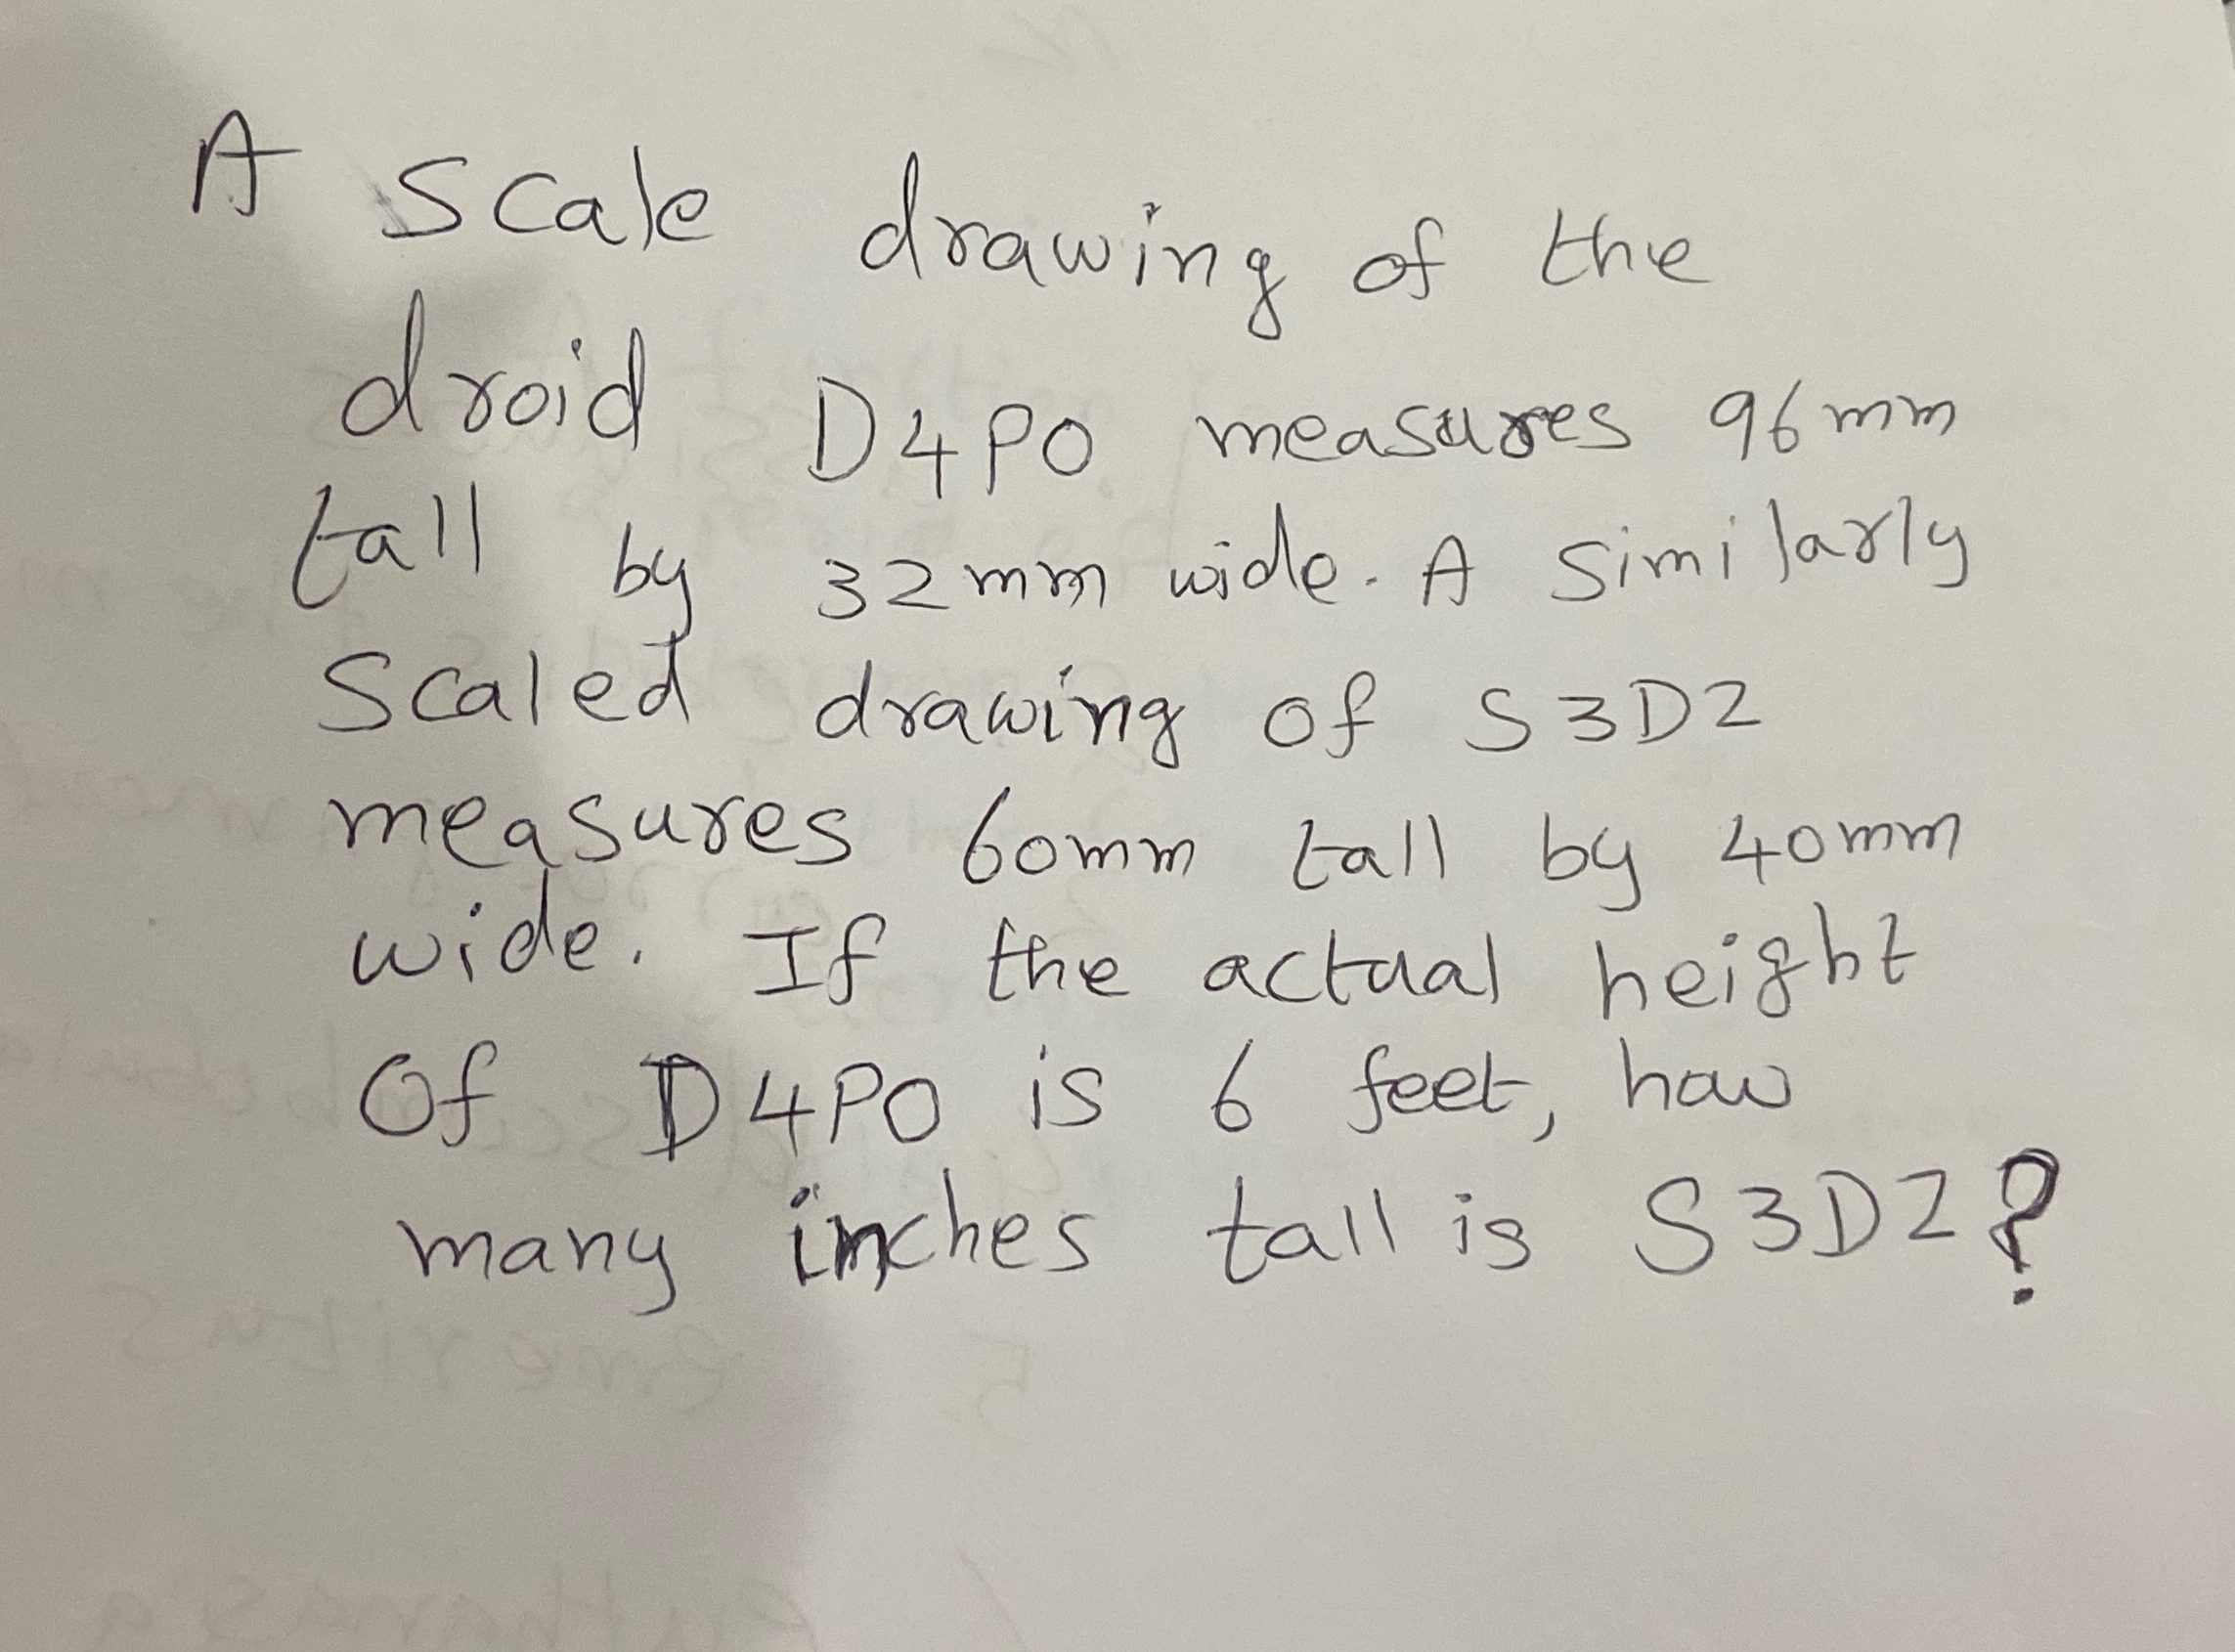 A scale drawing of the
droid D4PO measures 96mm
tall by 32mm wide. A similarly
scaled drawing of S3D2
measures 60mm tall by 40mm
wide. If the actual height
of D4PO is 6 feet, how
many inches tall is S3D2?